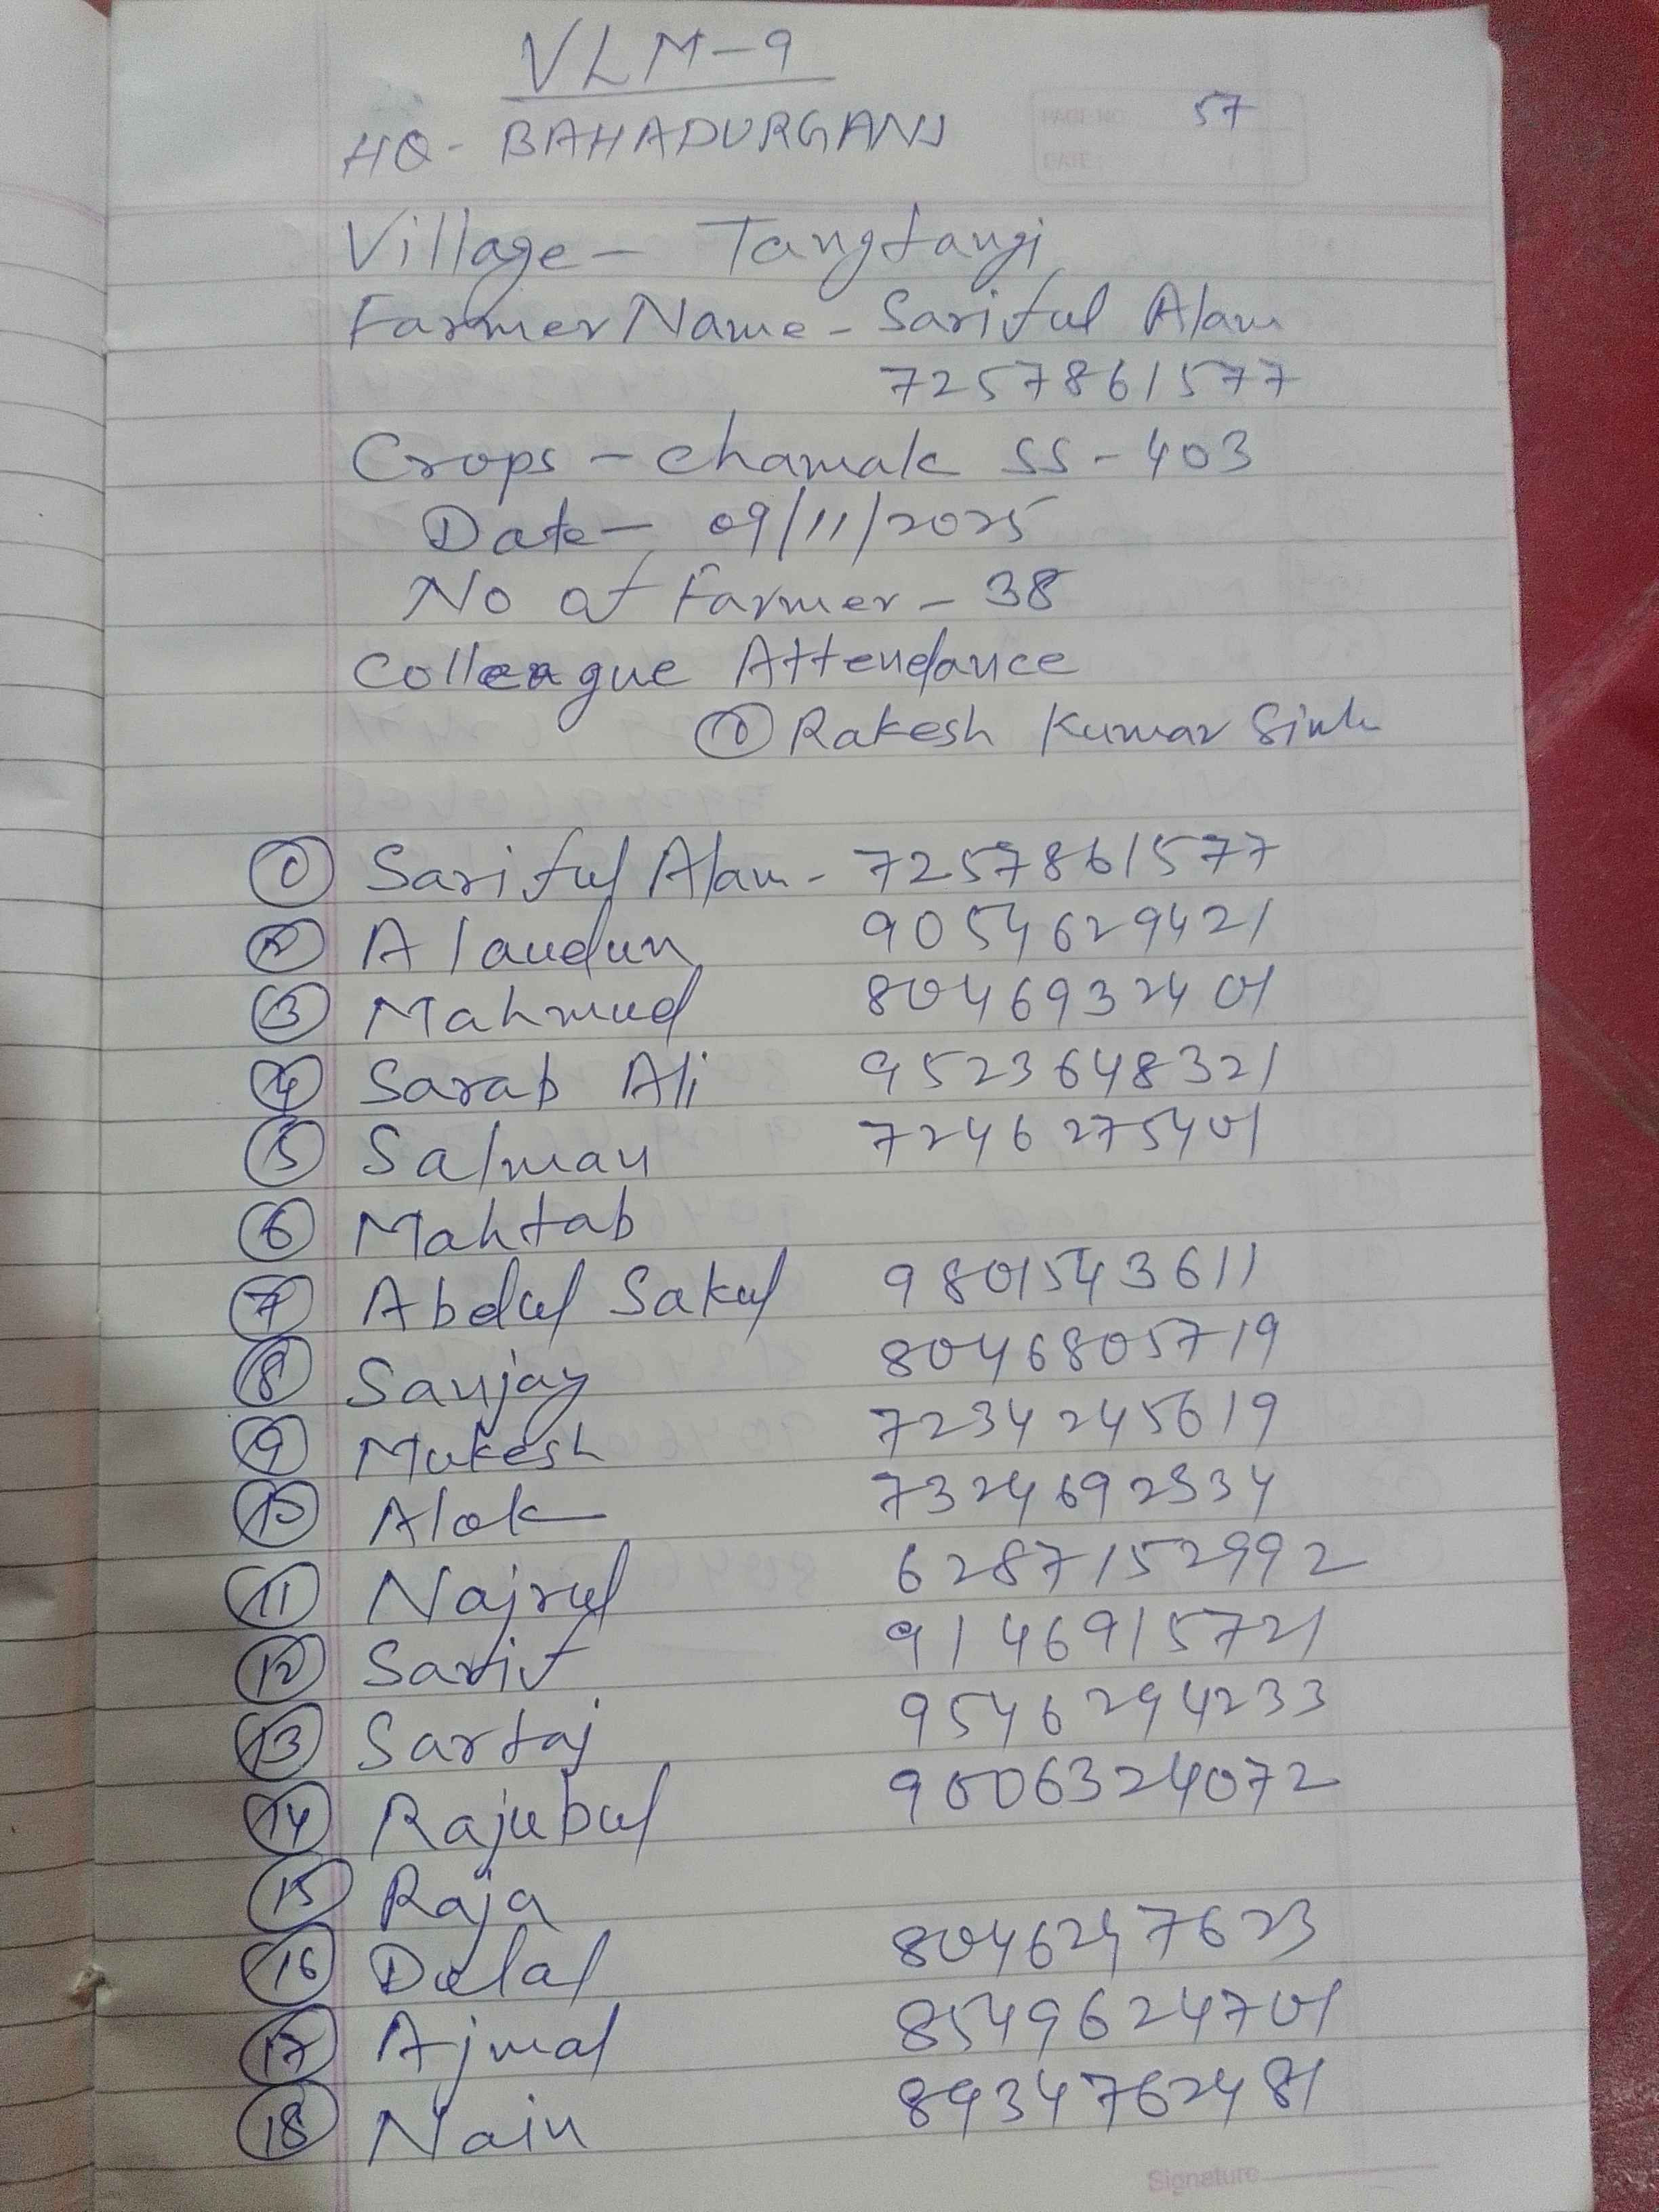 VLM-9
HQ- BAHADURGANJ
PAGE NO 57
DATE
Village- Tangtangi
Farmer Name- Sariful Alam
7257861577
Crops - Chamak SS-403
Date- 09/11/2025
No of Farmer - 38
Colleague Attendance
① Rakesh Kumar
① Sariful Alam - 7257861577
② Alaudun 9054629421
③ Mahmud 8046932401
④ Sarab Ali 9523648321
⑤ Salman 7246275401
⑥ Mahtab
⑦ Abdul Sakul 9801543611
⑧ Sanjay 8046805719
⑨ Mukesh 7234245619
⑩ Alok 7324692334
⑪ Najrul 6287152992
⑫ Sarif 9146915721
⑬ Sartaj 9546294233
⑭ Rajubul 9006324072
⑮ Raja
⑯ Dulal 8046247623
⑰ Ajmal 8549624701
⑱ Nain 8934762481
Signature